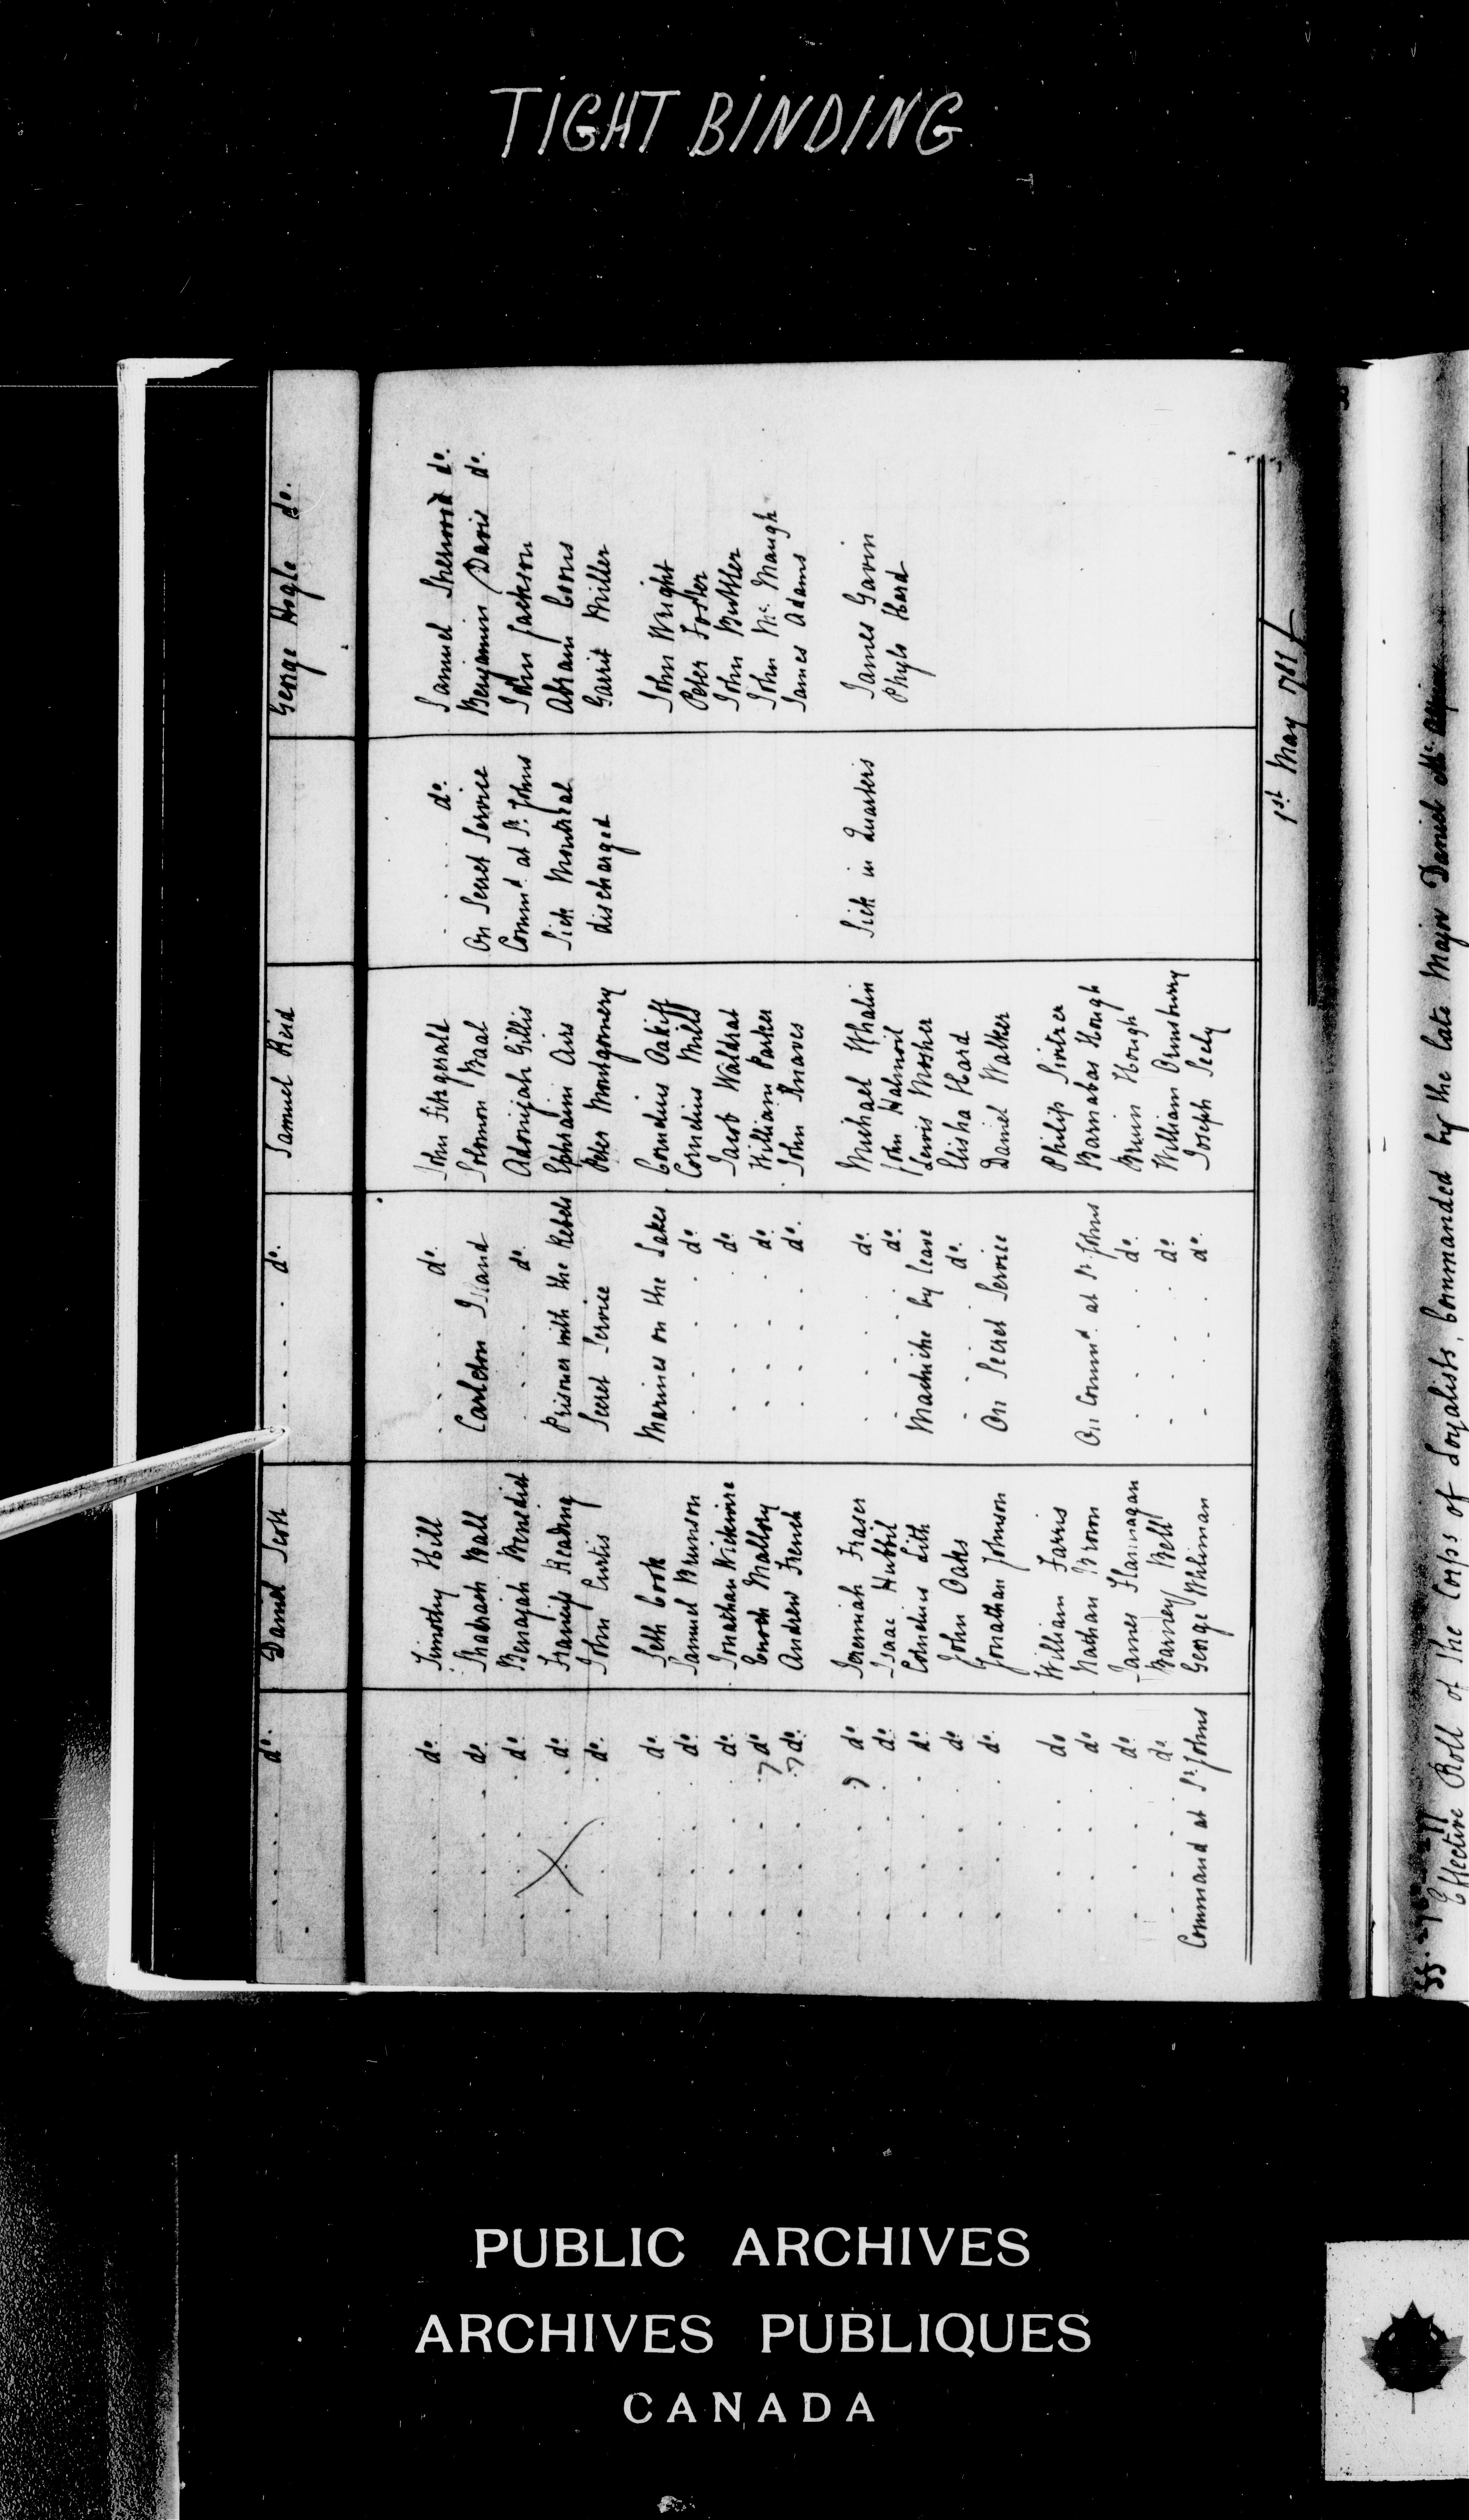 TIGHT BINDING
do. Daniel Scott do. Samuel Reid George Hogle do.
do. Timothy Hill do. John Fitzgerald do. Samuel Sherwood do.
do. Shadrach Ball Carleton Island Solomon Baal On Secret Service Benjamin Davis do.
do. Benajah Benedict do. Adonijah Gillis Commd. at St. Johns John Jackson
do. Francis Reading Prisoner with the Rebels Ephraim Airs Sick Montreal Abram Coons
do. John Curtis Secret Service Peter Montgomery discharged Garrit Miller
do. Seth Cook Marines on the Lakes Cornelius Oakiff John Wright
do. Samuel Brunson do. Cornelius Mills Peter Foster
do. Jonathan Wickwire do. Jacob Waldrat John Buttler
7 do. Enoch Mallory do. William Parker John Mc. Maugh
7 do. Andrew French do. John Knaves James Adams
7 do. Jeremiah Fraser do. Michael Whalin Sick in Quarters James Gavin
do. Isaac Hubbil do. John Phyls Hard
do. Cornelius Lith Machiche by leave Lewis Mosher
do. John Oaks do. Elisha Hard
do. Jonathan Johnson On Secret Service Daniel Walker
do William Farris Philip
do. Nathan Brown On Commd. at St. Johns Barnabas Hough
do. James Flannagan do. Bruin Hough
do. Barney Bell do. William Ormsburry
Command at St. Johns George Whliman do. Joseph Seely
1st. May 1781
Effective Roll of the Corps of Loyalists, Commanded by the late Major Daniel Mc. Alpin
PUBLIC ARCHIVES
ARCHIVES PUBLIQUES
CANADA